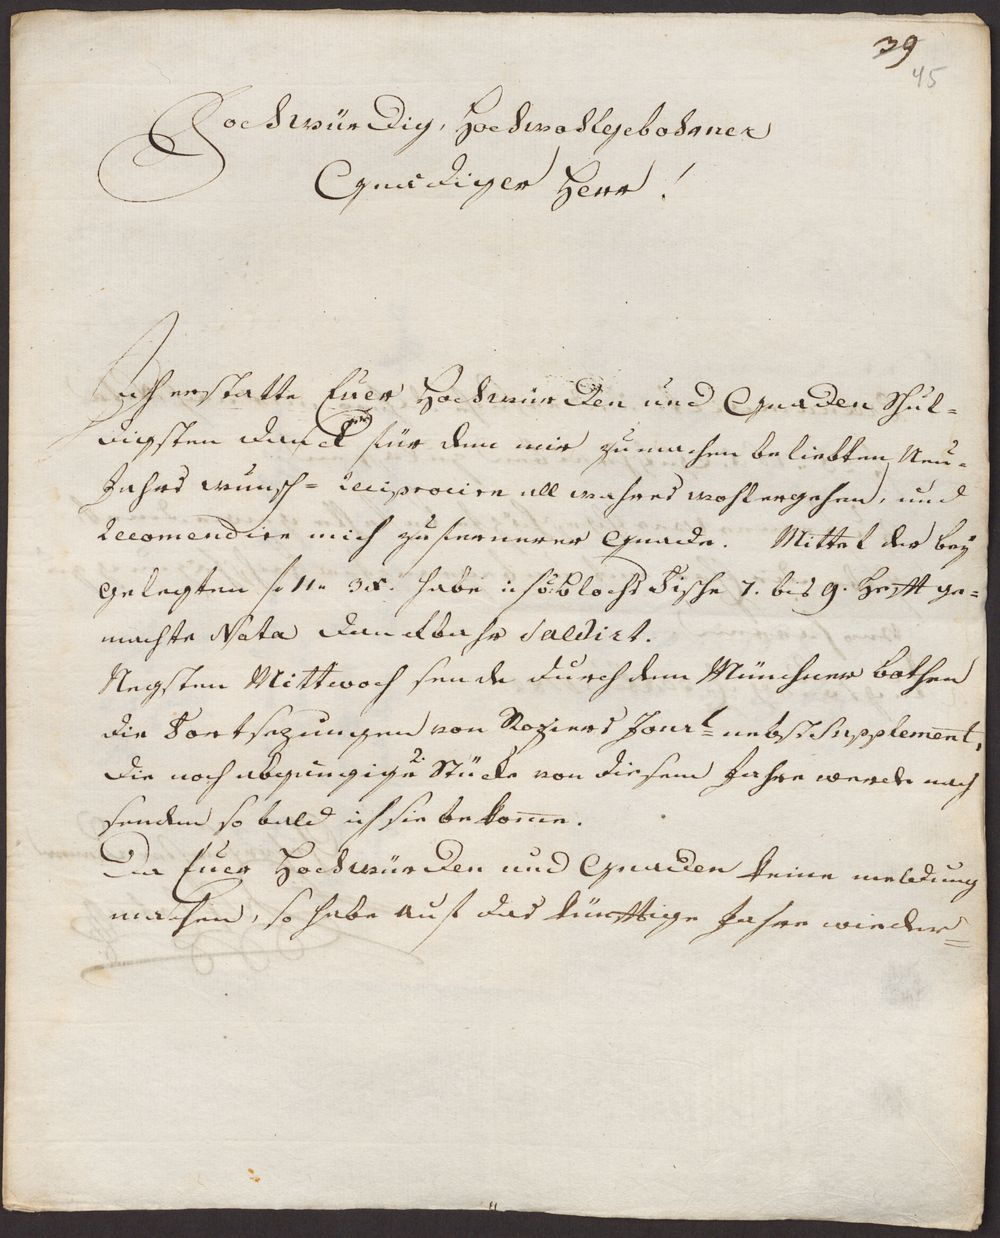 39
45
Hochwürdig, Hochwohlgebohrner
Gnädiger Herr!
Ich erstatte Euer Hochwürden und Gnaden schul=
digsten danck für dem mir zu machen beliebten Neu=
Jahrs wunsch= reciprocire all wahres wohlergehen, und
recomendire mich zu fernerer Gnade. Mittel der bey
gelegten f 11. 3x. habe Blochs Fische 7. bis 9. Hefft ge=
machte Nota danckbahr saldirt.
Negsten Mittwoch sende durch dem Münchner bothen
die Fortsezungen von Roziers Jour<sup>l</sup> nebst Supplement,
die noch abgängige 2 Stücke von diesem Jahre werde nach
senden so bald ich sie bekomme.
Da Euer Hochwürden und Gnaden keine meldung
machen, so habe auf das künfftige Jahre wieder=